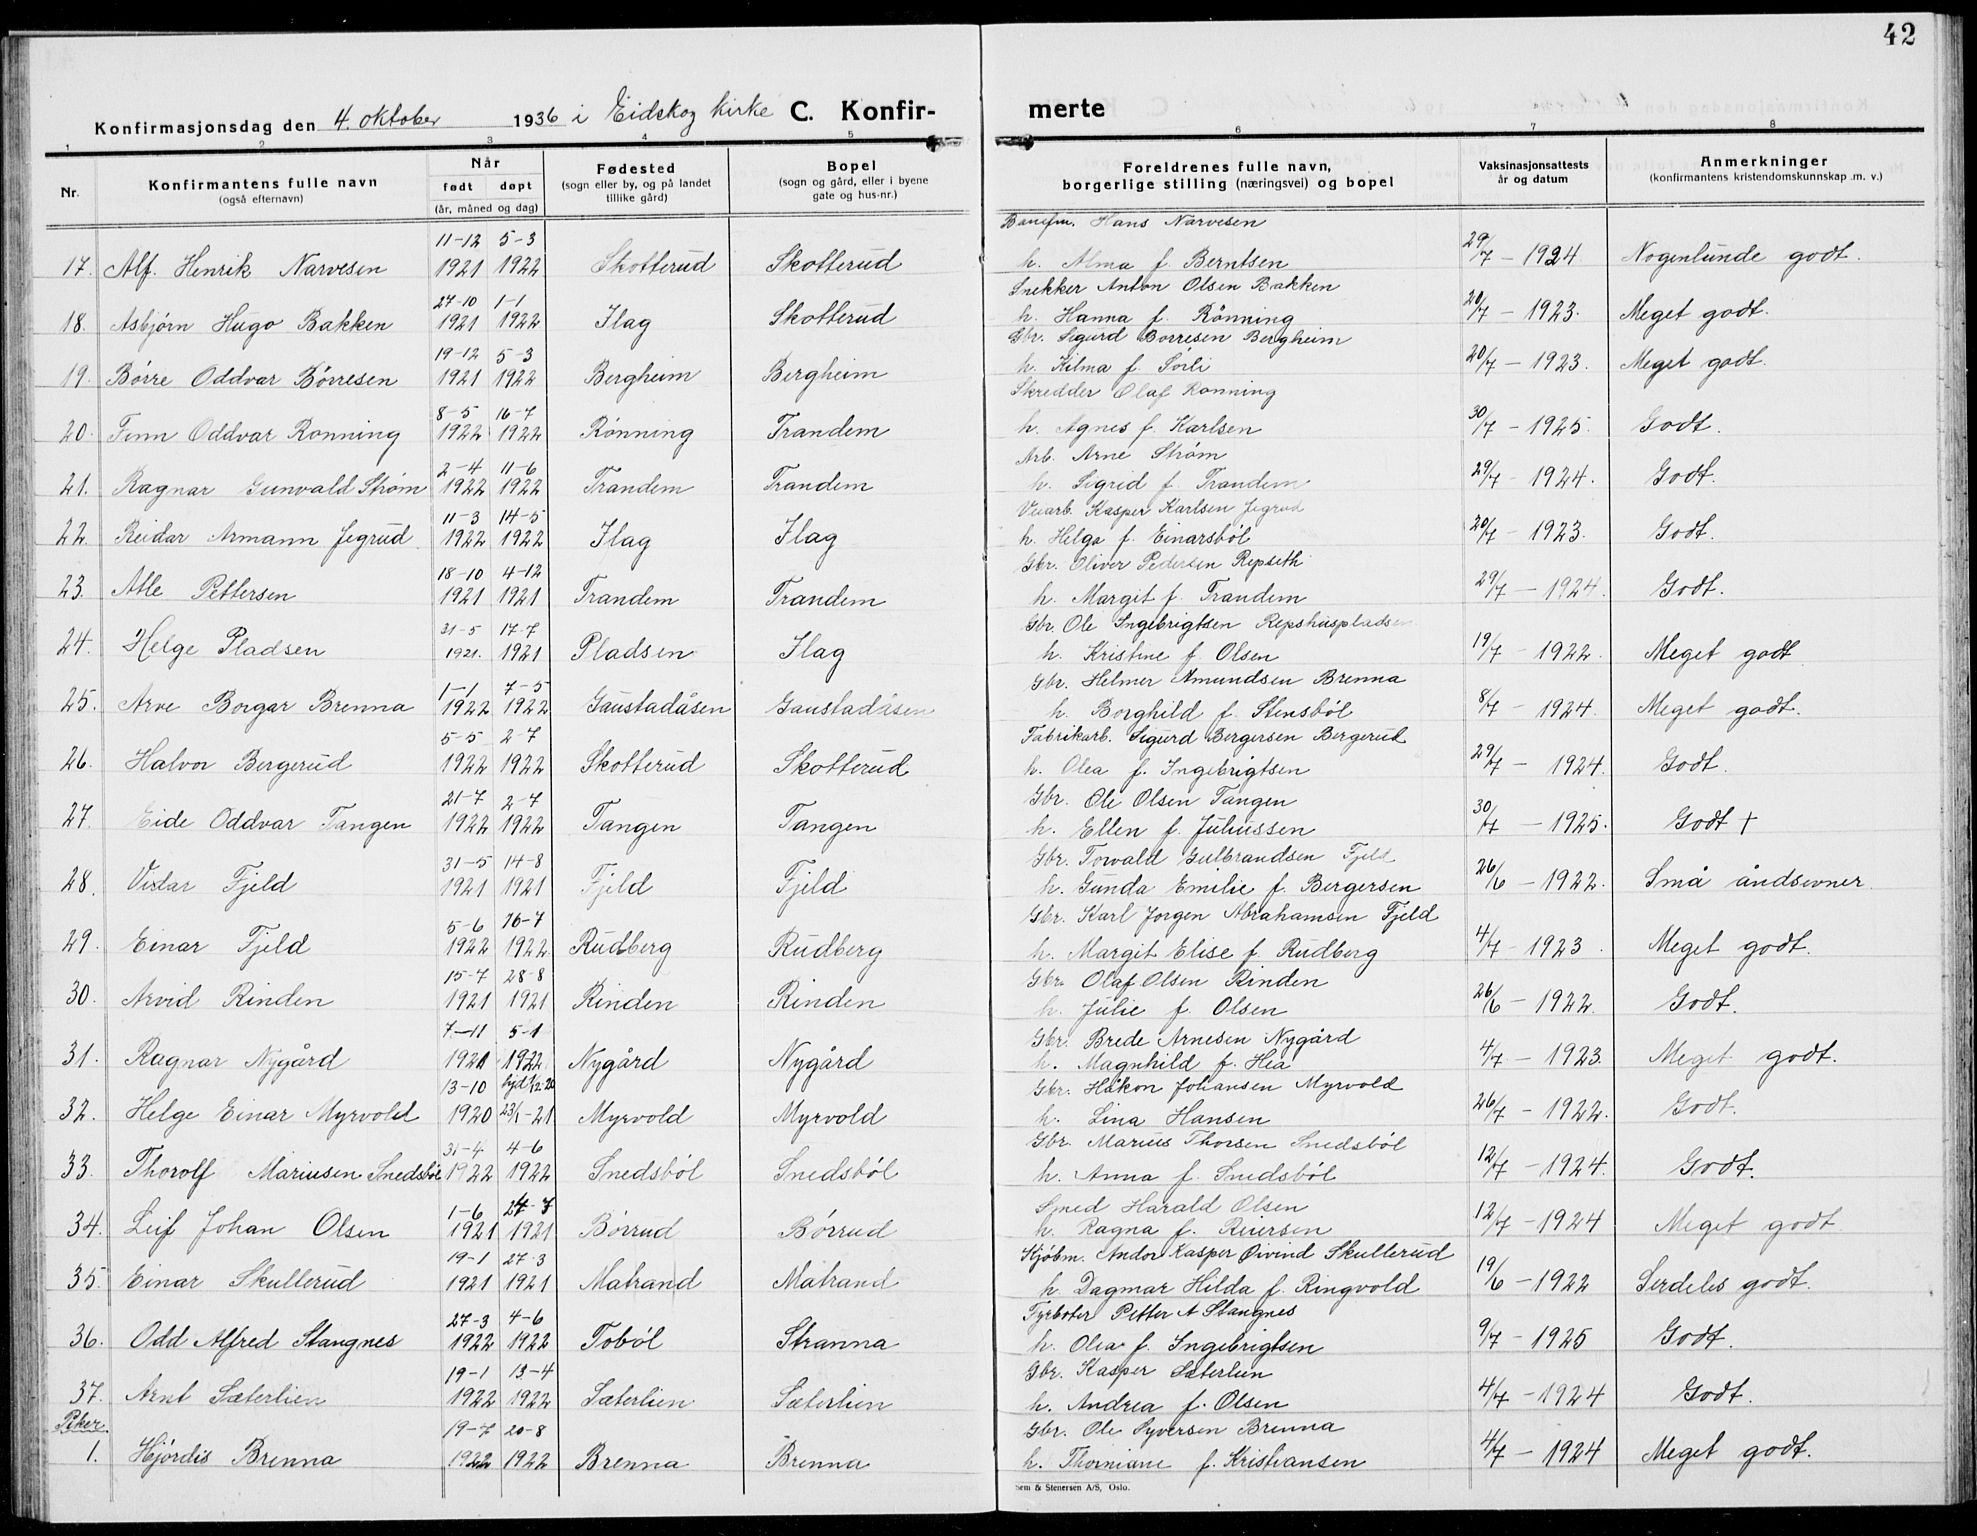 42
Konfirmasjonsdag den 4. oktober 1936 i Eidskog kirke C. Konfir- merte
1 2 3 4 5 6 7 8
Nr. Konfirmantens fulle navn (også efternavn) Når født døpt (år, måned og dag) Fødested (sogn eller by, og på landet tillike gård) Bopel (sogn og gård, eller i byene gate og hus-nr.) Foreldrenes fulle navn, borgerlige stilling (næringsvei) og bopel Vaksinasjonsattests år og datum Anmerkninger (konfirmantens kristendomskunnskap m. v.)
11-12 5-3 Hans Narvesen
17. Alf. Henrik Narvesen 1921 1922 Skotterud Skotterud h. Alma f. Berntsen 29/7 - 1924 Nogenlunde godt.
27-10 1-1 Snekker Anton Olsen Bakken
18. Asbjørn Hugo Bakken 1921 1922 Ilag Skotterud h. Hanna f. Rönning 20/7 - 1923. Meget godt.
19-12 5-3 Gbr. Sigurd Börresen Bergheim
19. Börre Oddvar Börresen 1921 1922 Bergheim Bergheim h. Hilma f. Sörli 20/7 - 1923. Meget godt.
8-5 16-7 Skredder Olaf Rönning
20. Finn Oddvar Rönning 1922 1922 Rönning Trandem h. Agnes f. Karlsen 30/7 - 1925. Godt.
2-4 11-6 Arb. Arne Strøm
21. Ragnar Gunvald Strøm 1922 1922 Trandem Trandem h. Sigrid f. Trandem 29/7 - 1924. Godt.
11-3 14-5 Veiarb. Kasper Karlsen Jegrud
22. Reidar Armann Jegrud 1922 1922 Ilag Ilag h. Helga f. Einarsböl 20/7 - 1923. Godt.
18-10 4-12 Gbr. Oliver Pedersen Repseth
23. Atle Pettersen 1921 1921 Trandem Trandem h. Margit f. Trandem 29/7 - 1924. Godt.
31-5 17-7 Gbr. Ole Ingebrigtsen Repshuspladsen
24. Helge Pladsen 1921. 1921 Pladsen Ilag h. Kristine f. Olsen 19/7 - 1922. Meget godt
1-1 7-5 Gbr. Helmer Amundsen Brenna
25. Arve Borgar Brenna 1922 1922 Gaustadåsen Gaustadåsen h. Borghild f. Stensböl 8/7 - 1924. Meget godt.
5-5 2-7 Fabrikarb. Sigurd Bergersen Bergerud
26. Halvor Bergerud 1922 1922 Skotterud Skotterud h. Olea f. Ingebrigtsen 29/7 - 1924. Godt.
21-7 2-7 Gbr. Ole Olsen Tangen
27. Eide Oddvar Tangen 1922 1922 Tangen Tangen h. Ellen f. Juliussen 30/7 - 1925. Godt +
31-5 14-8 Gbr. Torvald Gulbrandsen Fjeld
28. Vidar Fjeld 1921 1921 Fjeld Fjeld h. Gunda Emilie f. Bergersen 26/6 - 1922. Små åndsevner.
5-6 16-7 Gbr. Karl Jörgen Abrahamsen Fjeld
29. Einar Fjeld 1922 1922 Rudberg Rudberg h. Margit Elise f. Rudberg 4/7 - 1923. Meget godt.
15-7 28-8 Gbr. Olaf Olsen Rinden
30. Arvid Rinden 1921 1921 Rinden Rinden h. Julie f. Olsen 26/6 - 1922. Godt.
7-11 5-1 Gbr. Brede Arnesen Nygård
31. Ragnar Nygård 1921 1922 Nygård Nygård h. Magnhild f. Hea 4/7 - 1923. Meget godt.
13-10 Gbr. Håkon Johansen Myrvold
32. Helge Einar Myrvold 1920 23/1-21 Myrvold Myrvold h. Lina Hansen 26/7 - 1922. Godt.
31-4 4-6 Gbr. Marius Thorsen Snedsböl
33. Thorolf Mariusen Snedsböl 1922 1922 Snedsböl Snedsböl h. Anna f. Snedsböl 12/7 - 1924. Godt.
1-6 24-7 Smed Harald Olsen
34. Leif Johan Olsen 1921 1921 Börrud Börrud h. Ragna f. Reiersen 12/7 - 1924 Meget godt
19-1 27-3 Kjøbm. Andor Kasper Øivind Skullerud
35. Einar Skullerud 1921 1921 Matrand Matrand h. Dagmar Hilda f. Ringvold 19/6 - 1922 Serdeles godt.
27-3 4-6 Fyrbøter Petter A Stangnes
36. Odd Alfred Stangnes 1922 1922 Toböl Stranna h. Olea f. Ingebrigtsen 9/7 - 1925 Godt.
19-1 13-4 Gbr. Kasper Sæterlien
37. Arnt Sæterlien 1922 1922 Sæterlien Sæterlien h. Andrea f. Olsen 4/7 - 1924 Godt.
Piker. 19-7 20-8 Gbr. Ole Syversen Brenna
1. Hjördis Brenna 1922 1922 Brenna Brenna h. Thorniane f. Kristiansen 4/7 - 1924 Meget godt.
Sem & Stenersen A/S, Oslo.